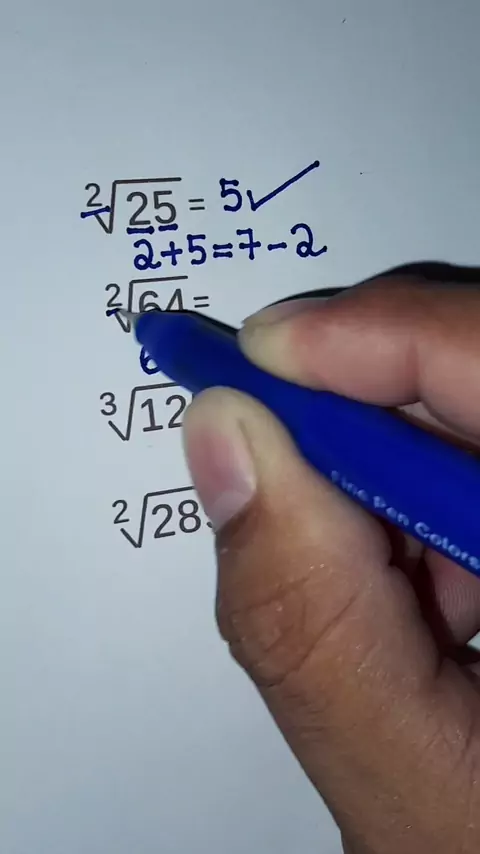 ²√25 = 5✓
2+5=7-2
²√64 =
6
³√12
²√28
Fine Pen Colors